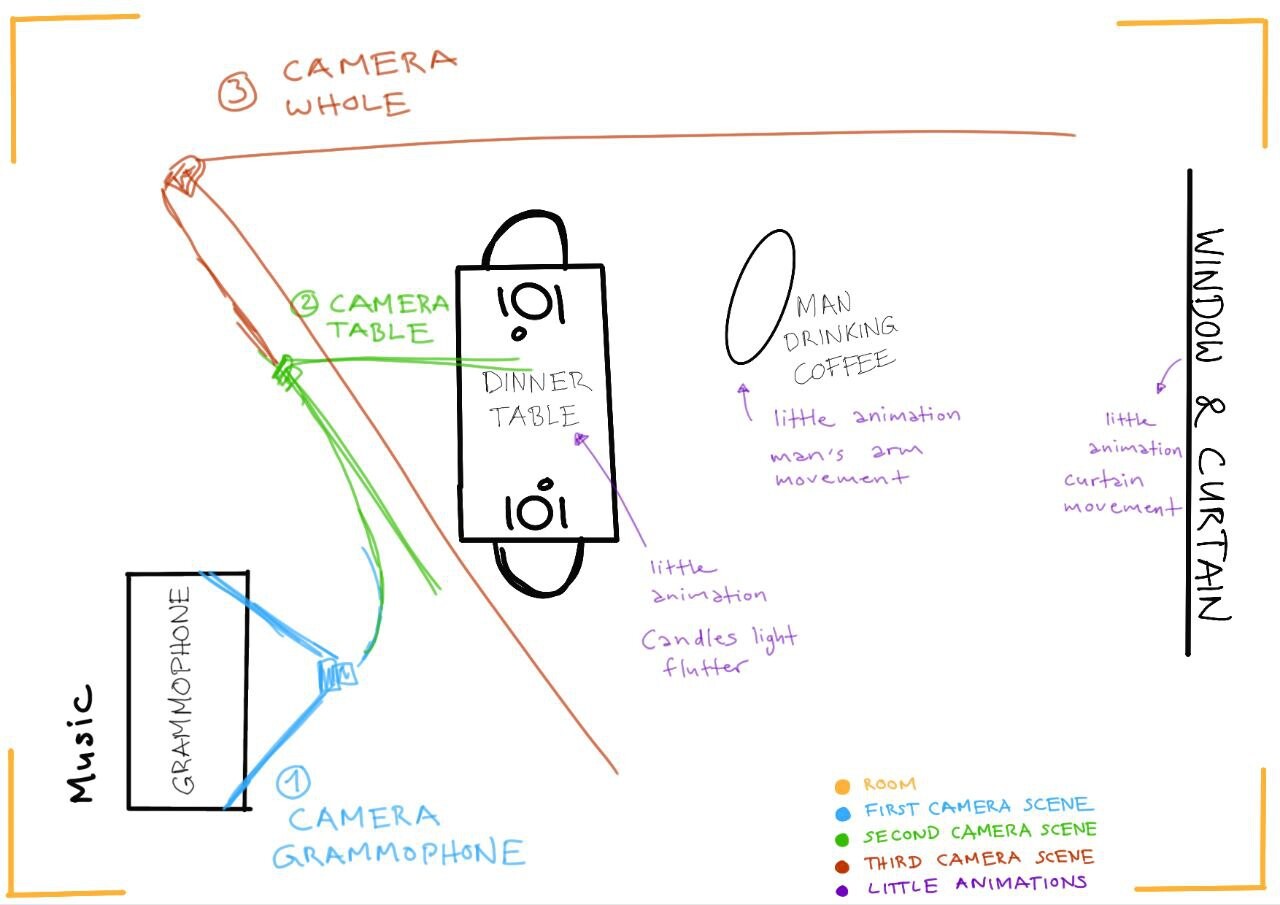 ③ CAMERA
WHOLE
② CAMERA
TABLE
DINNER
TABLE
MAN
DRINKING
COFFEE
little animation
man's arm
movement
WINDOW & CURTAIN
little
animation
curtain
movement
little
animation
Candles light
flutter
GRAMMOPHONE
Music
① CAMERA
GRAMMOPHONE
ROOM
FIRST CAMERA SCENE
SECOND CAMERA SCENE
THIRD CAMERA SCENE
LITTLE ANIMATIONS